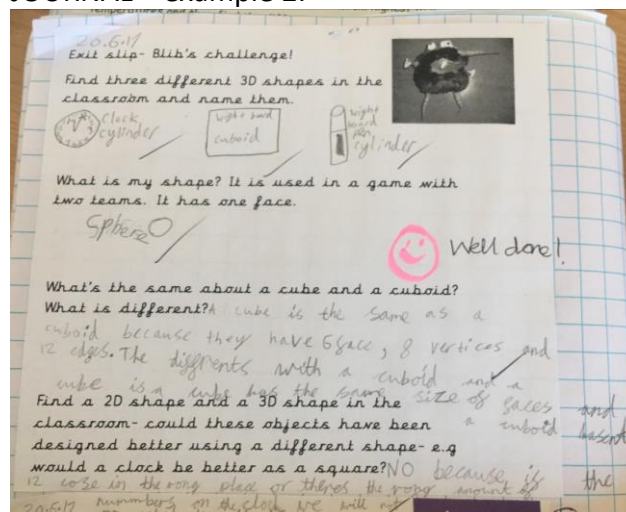 JOURNAL - example 2:
20.6.17
Exit slip- Blib's challenge!
Find three different 3D shapes in the
classroom and name them.
clock
cylinder
wight bord
cuboid
wight
board
pen
cylinder
What is my shape? It is used in a game with
two teams. It has one face.
Sphere
Well done!
What's the same about a cube and a cuboid?
What is different? A cube is the same as a
cuboid because they have 6 face, 8 vertices and
12 edges. The diffrents with a cuboid and a
cube is a cube has the same size of faces and
a cuboid hasent
Find a 2D shape and a 3D shape in the
classroom- could these objects have been
designed better using a different shape- e.g
would a clock be better as a square? NO because is the
12 cose in the rong place or theres the rong amount of
nummbers on the clock we will not
20.6.17